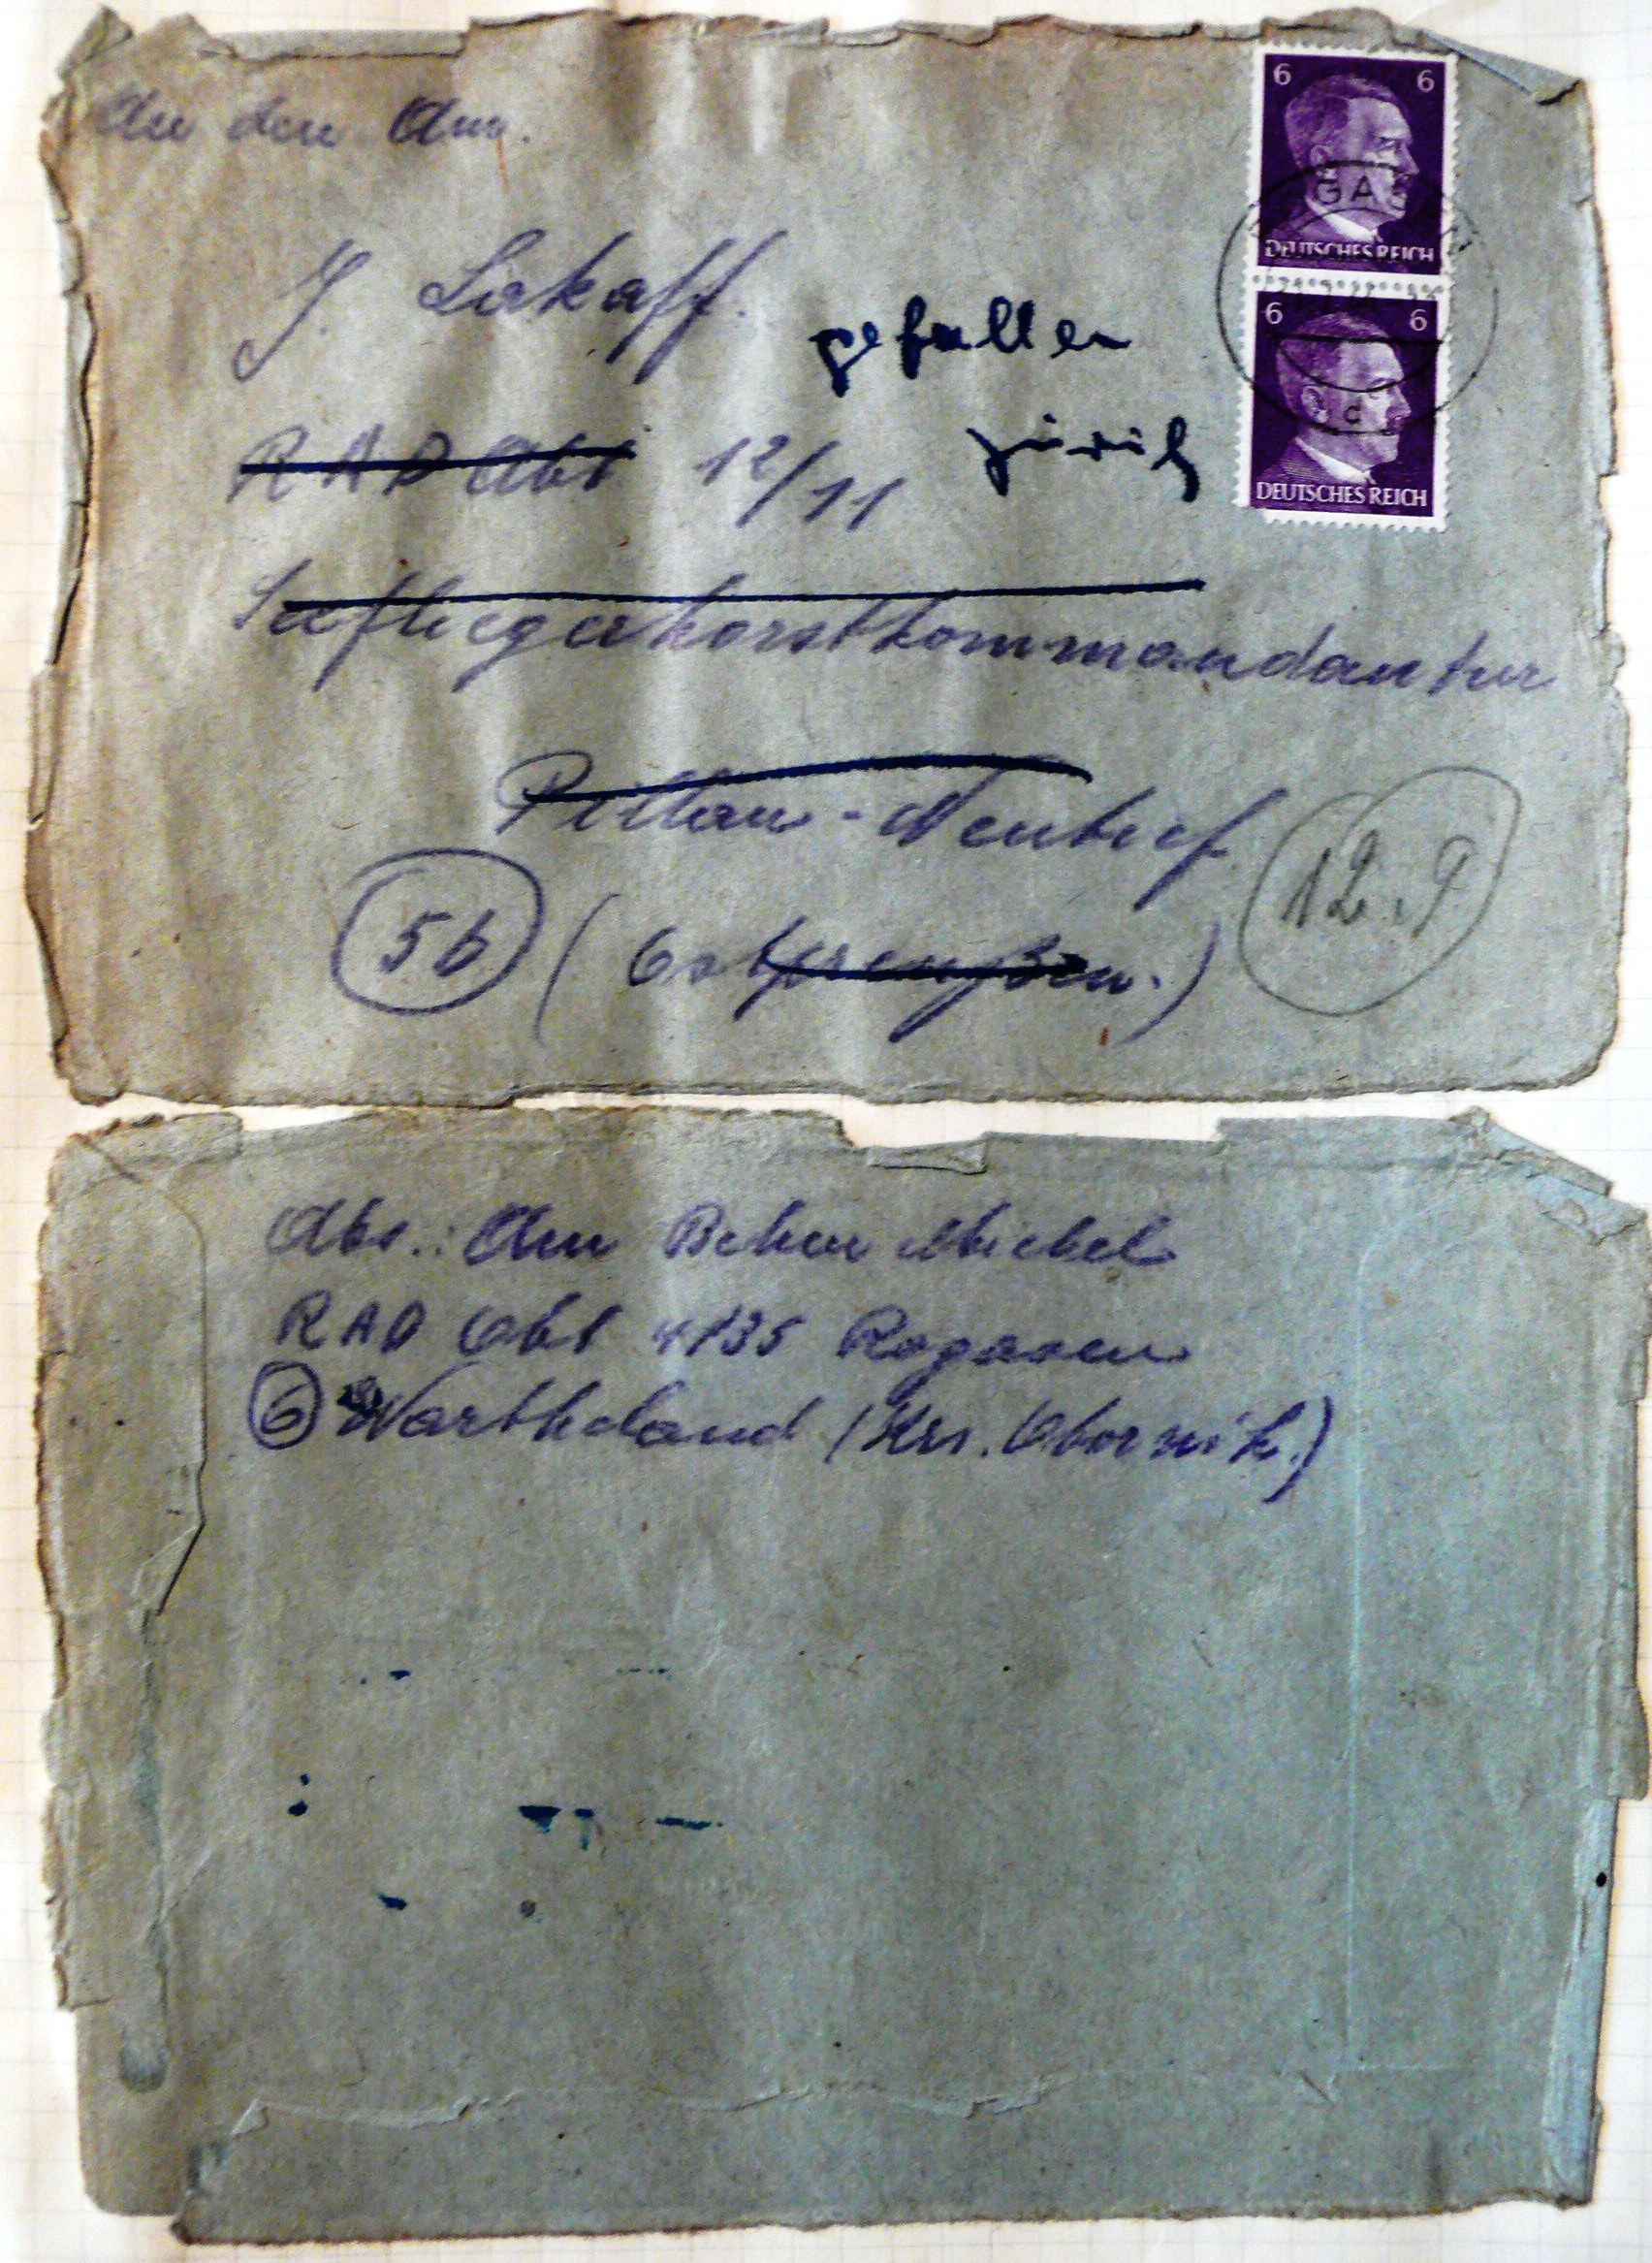 An den Am.
6 6
DEUTSCHES REICH
J. Lakaff.
gefallen
6 6
RAD Abt 12/11
zürich
DEUTSCHES REICH
Seefliegerhorstkommandantur
Pillau-Neutief
5b (Ostpreußen.)
12.9
Abs.: Am Michel
RAD Abt 4/135 Rogasen
6 Wartheland (Krs. Obornik.)